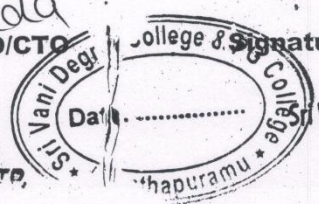 /CTO
Signatu
Sri Vani Degr ollege & PG College
Dat ..................
Sri
thapuramu